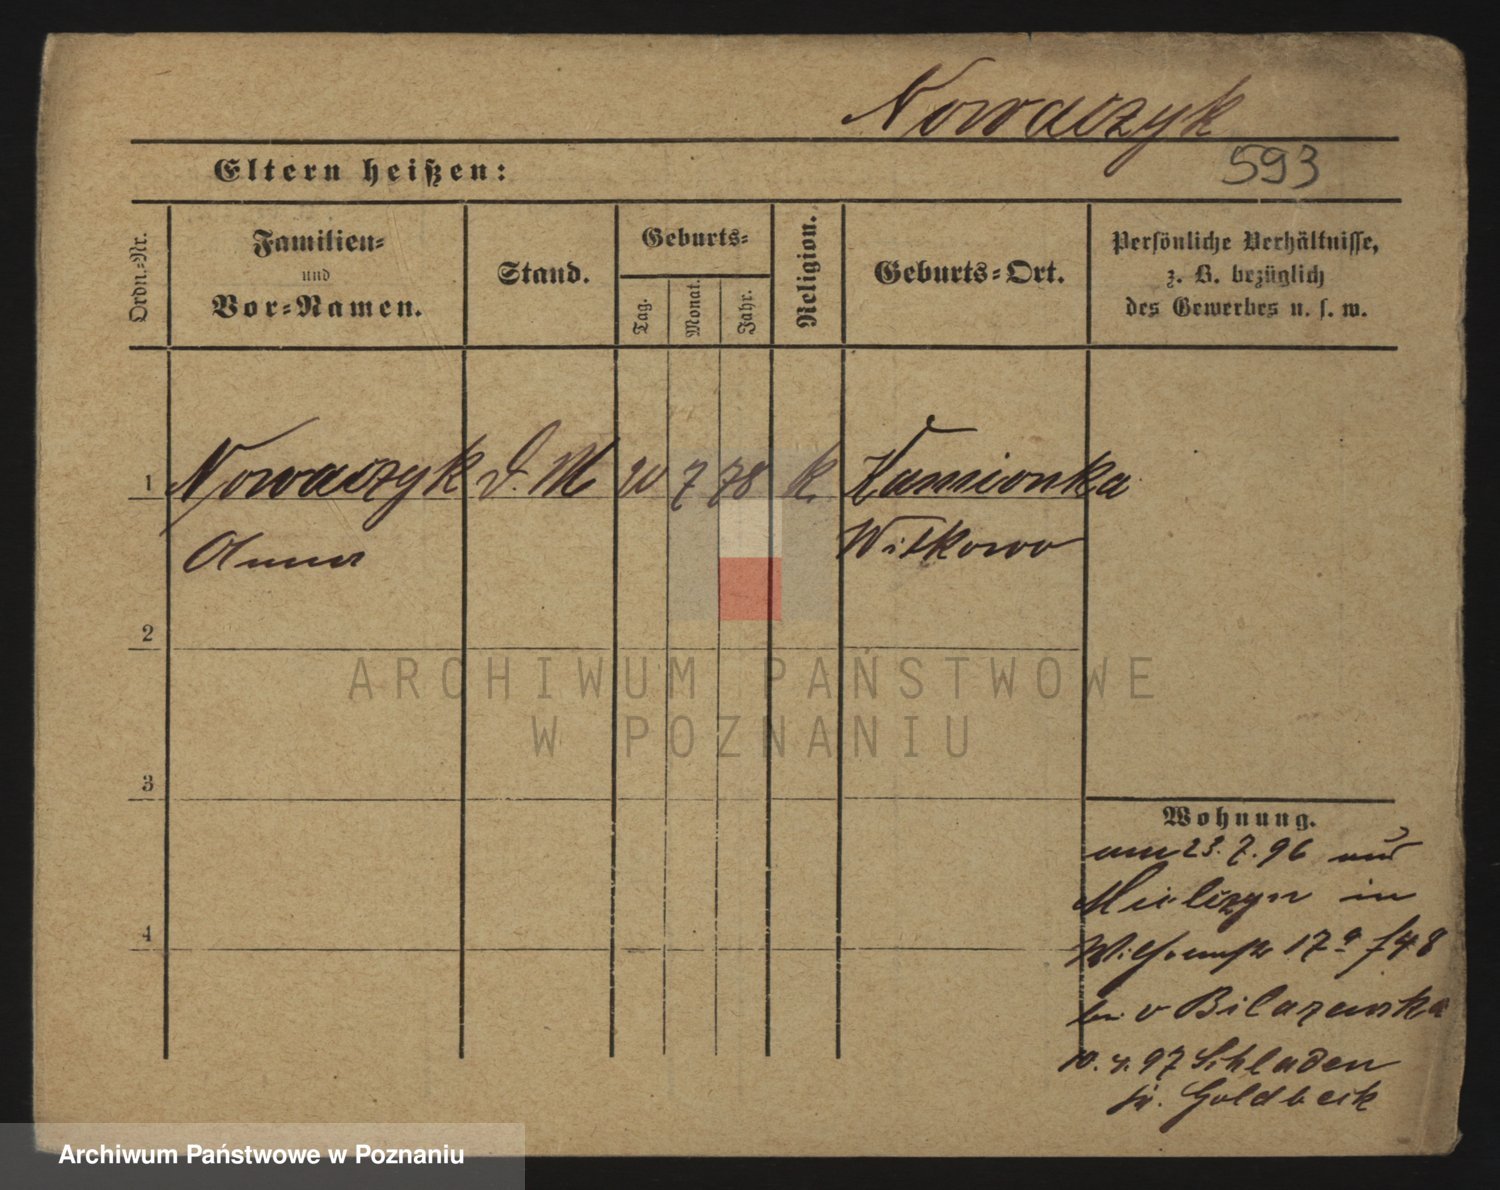 Nowaczyk
593
Eltern heißen:
Ordn.-Nr.
Familien-
und
Vor-Namen.
Stand.
Geburts-
Tag.
Monat.
Jahr.
Religion.
Geburts-Ort.
Persönliche Verhältnisse,
z. B. bezüglich
des Gewerbes u. s. w.
1 Nowaczyk D. M 20 7 78 k. Kamionka
Anna Witkowo
2
3
4
Wohnung.
am 23.7.96 aus
Mielczyn in
17a 748
bei v
10.4.97 Schladen
Kr. Goldbeck
ARCHIWUM PAŃSTWOWE
W POZNANIU
Archiwum Państwowe w Poznaniu